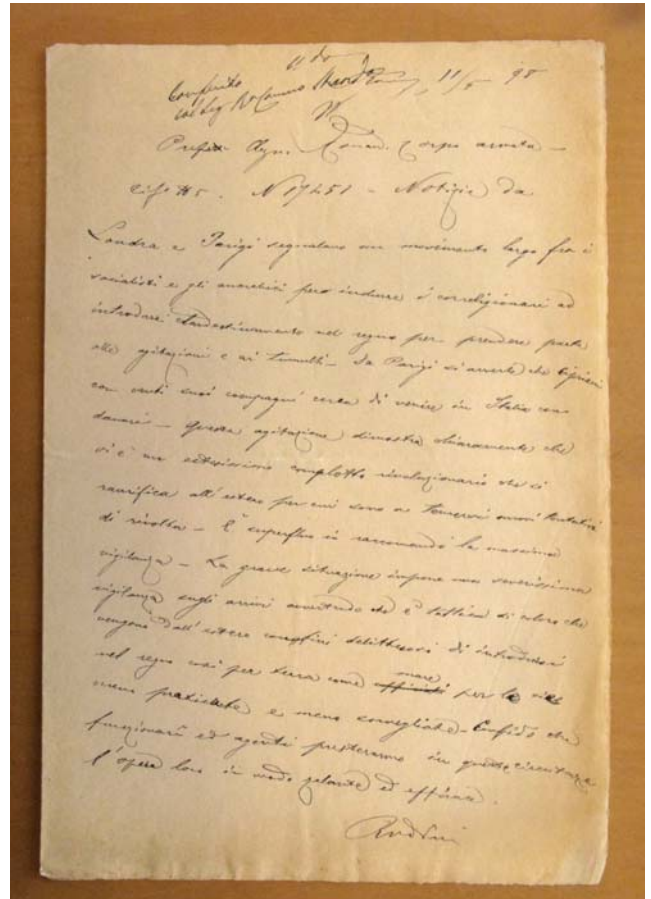 11/5 98
Londra e Parigi segnalano un movimento largo fra i
socialisti e gli anarchici per indurre i correligionari ad
introdursi clandestinamente nel regno per prendere parte
alle agitazioni e ai tumulti - Da Parigi si avverte che Cipriani
con venti suoi compagni cerca di venire in Italia con
danari - Questa agitazione dimostra chiaramente che
vi è un estesissimo complotto rivoluzionario che si
ramifica all'estero per cui sono a temersi nuovi tentativi
di rivolta - È superfluo io raccomandi la massima
vigilanza - La grave situazione impone una severissima
vigilanza sugli arrivi avvertendo che è tattica di coloro che
vengono dall'estero con fini delittuosi di introdursi
nel regno così per terra come mare per le vie
meno praticate e meno sorvegliate - Confido che
funzionarii ed agenti presteranno in queste circostanze
l'opera loro in modo zelante ed efficace.
Rudinì